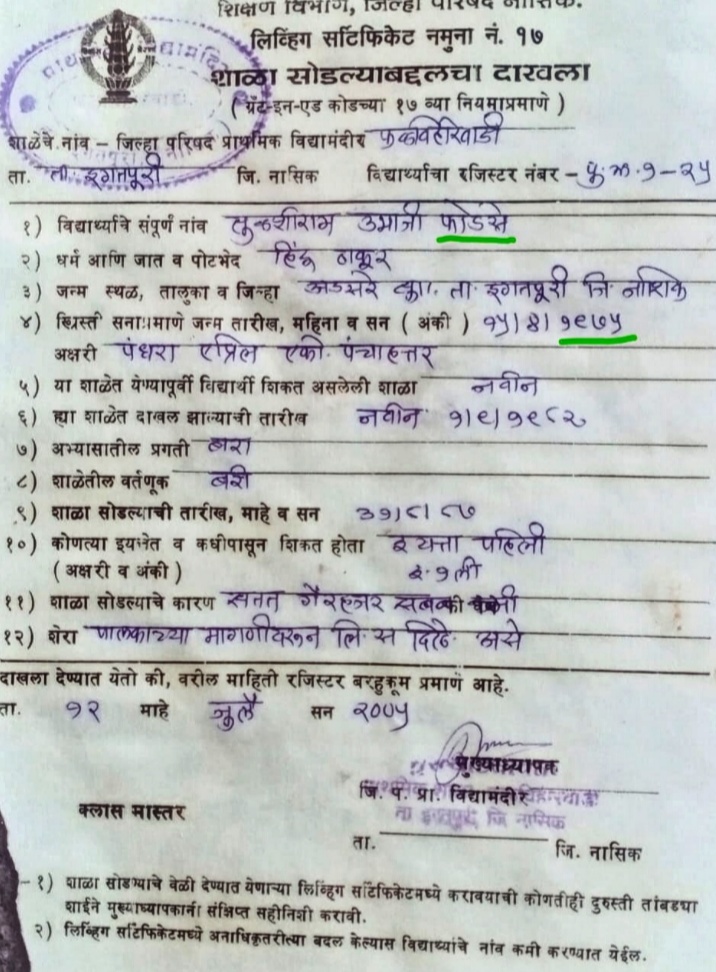 शिक्षण विभाग, जिल्हा परिषद नासिक.
लिव्हिंग सर्टिफिकेट नमुना नं. १७
शाळा सोडल्याबद्दलचा दाखला
( ग्रँट-इन-एड कोडच्या १७ व्या नियमाप्रमाणे )
शाळेचे नांव – जिल्हा परिषद प्राथमिक विद्यामंदीर
ता. ता. इगतपूरी जि. नासिक विद्यार्थ्याचा रजिस्टर नंबर –
१) विद्यार्थ्याचे संपूर्ण नांव तुळशीराम उमाजी फोडसे
२) धर्म आणि जात व पोटभेद हिंदू ठाकूर
३) जन्म स्थळ, तालुका व जिल्हा अडसरे बु।। ता. इगतपूरी जि नाशिक
४) ख्रिस्ती सनाप्रमाणे जन्म तारीख, महिना व सन ( अंकी ) १५।४।१९७५
अक्षरी पंधरा एप्रिल एकी. पंचाहत्तर
५) या शाळेत येण्यापूर्वी विद्यार्थी शिकत असलेली शाळा नवीन
६) ह्या शाळेत दाखल झाल्याची तारीख नवीन १।९।१९८२
७) अभ्यासातील प्रगती बरा
८) शाळेतील वर्तणूक बरी
९) शाळा सोडल्याची तारीख, माहे व सन ३१।८।८७
१०) कोणत्या इयत्तेत व कधीपासून शिकत होता इयत्ता पहिली
( अक्षरी व अंकी ) इ. १ली
११) शाळा सोडल्याचे कारण सतत गैरहजर सबब कमी
१२) शेरा पालकाच्या मागणीवरून लि. स दिले असे
दाखला देण्यात येतो की, वरील माहिती रजिस्टर बरहुकूम प्रमाणे आहे.
ता. १२ माहे जुलै सन २००५
मुख्याध्यापक
जि. प. प्रा. विद्यामंदीर
ता इगतपुरी जि नासिक
क्लास मास्तर
ता. जि. नासिक
१) शाळा सोडण्याचे वेळी देण्यात येणाऱ्या लिव्हिंग सर्टिफिकेटमध्ये करावयाची कोणतीही दुरुस्ती तांबड्या
शाईने मुख्याध्यापकानी संक्षिप्त सहीनिशी करावी.
२) लिव्हिंग सर्टिफिकेटमध्ये अनाधिकृतरीत्या बदल केल्यास विद्यार्थ्याचे नांव कमी करण्यात येईल.